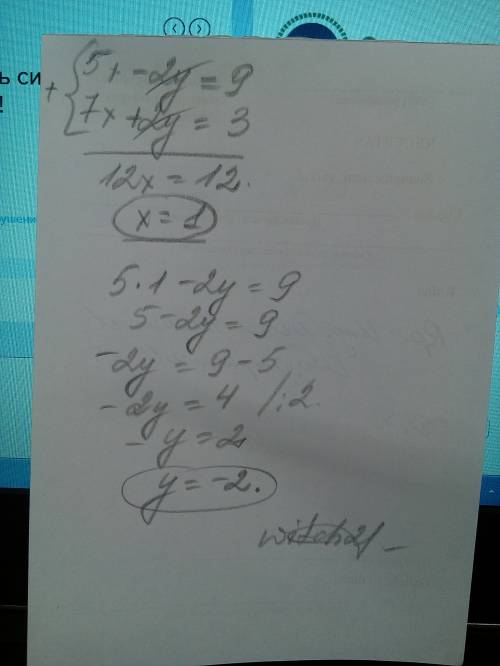 ь си
!
+ { 5x - 2y = 9
7x + 2y = 3
12x = 12.
x = 1
рушени
5 · 1 - 2y = 9
5 - 2y = 9
-2y = 9 - 5
-2y = 4 /:2
- y = 2
y = -2.
witch21_